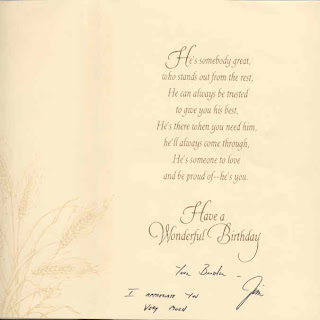 He's somebody great,
who stands out from the rest,
He can always be trusted
to give you his best,
He's there when you need him,
he'll always come through,
He's someone to love
and be proud of--he's you.
Have a
Wonderful Birthday
Your Brother -
Jim
I appreciate you
Very Much